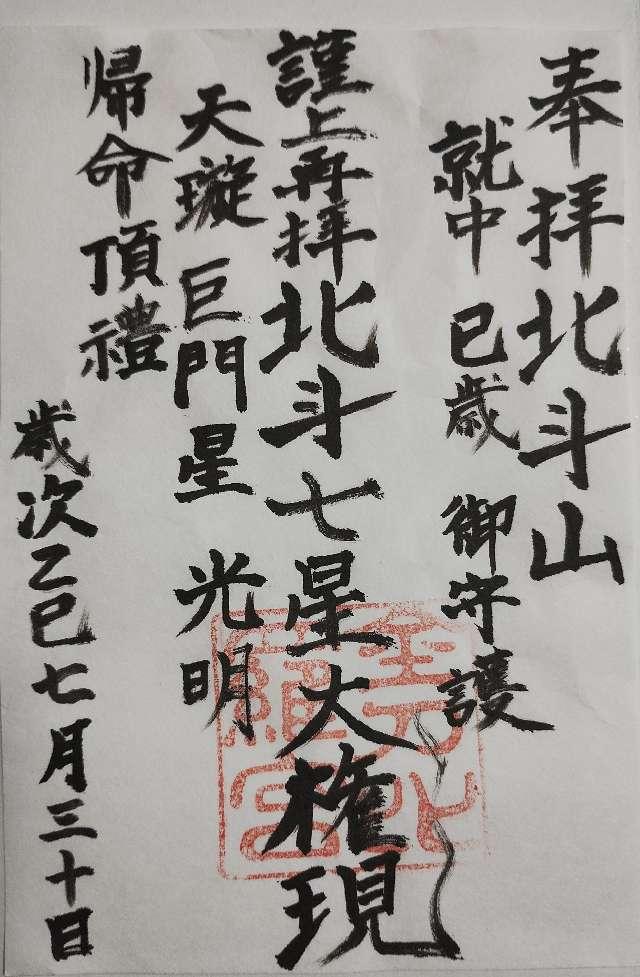 奉拝北斗山
就中 巳歳 御守護
謹上再拝北斗七星大権現
天璇 巨門星 光明
帰命頂禮
歳次乙巳七月三十日